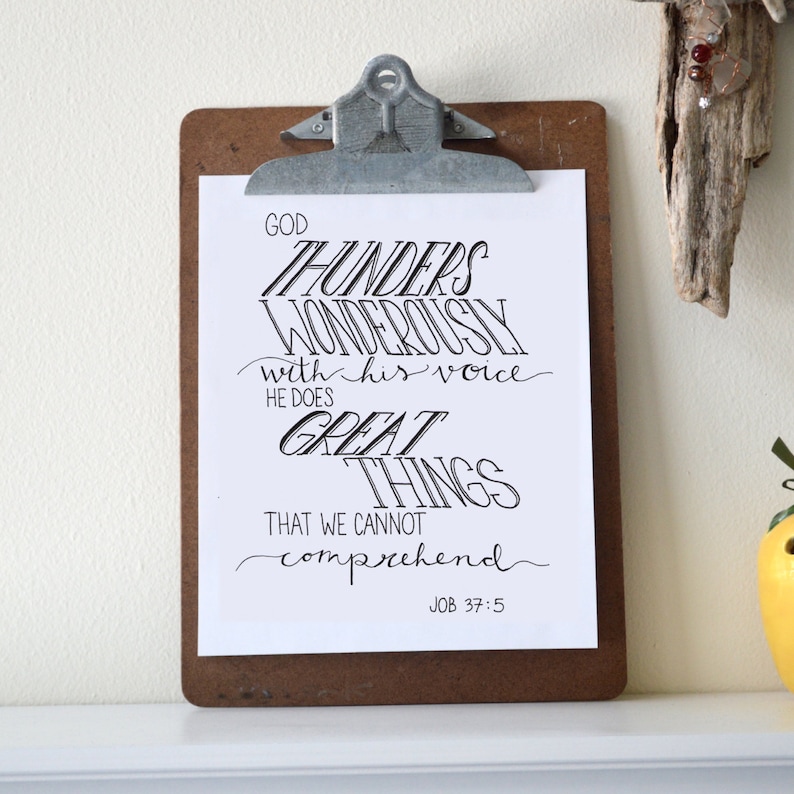 GOD
THUNDERS
WONDEROUSLY
with his voice
HE DOES
GREAT
THINGS
THAT WE CANNOT
comprehend
JOB 37:5